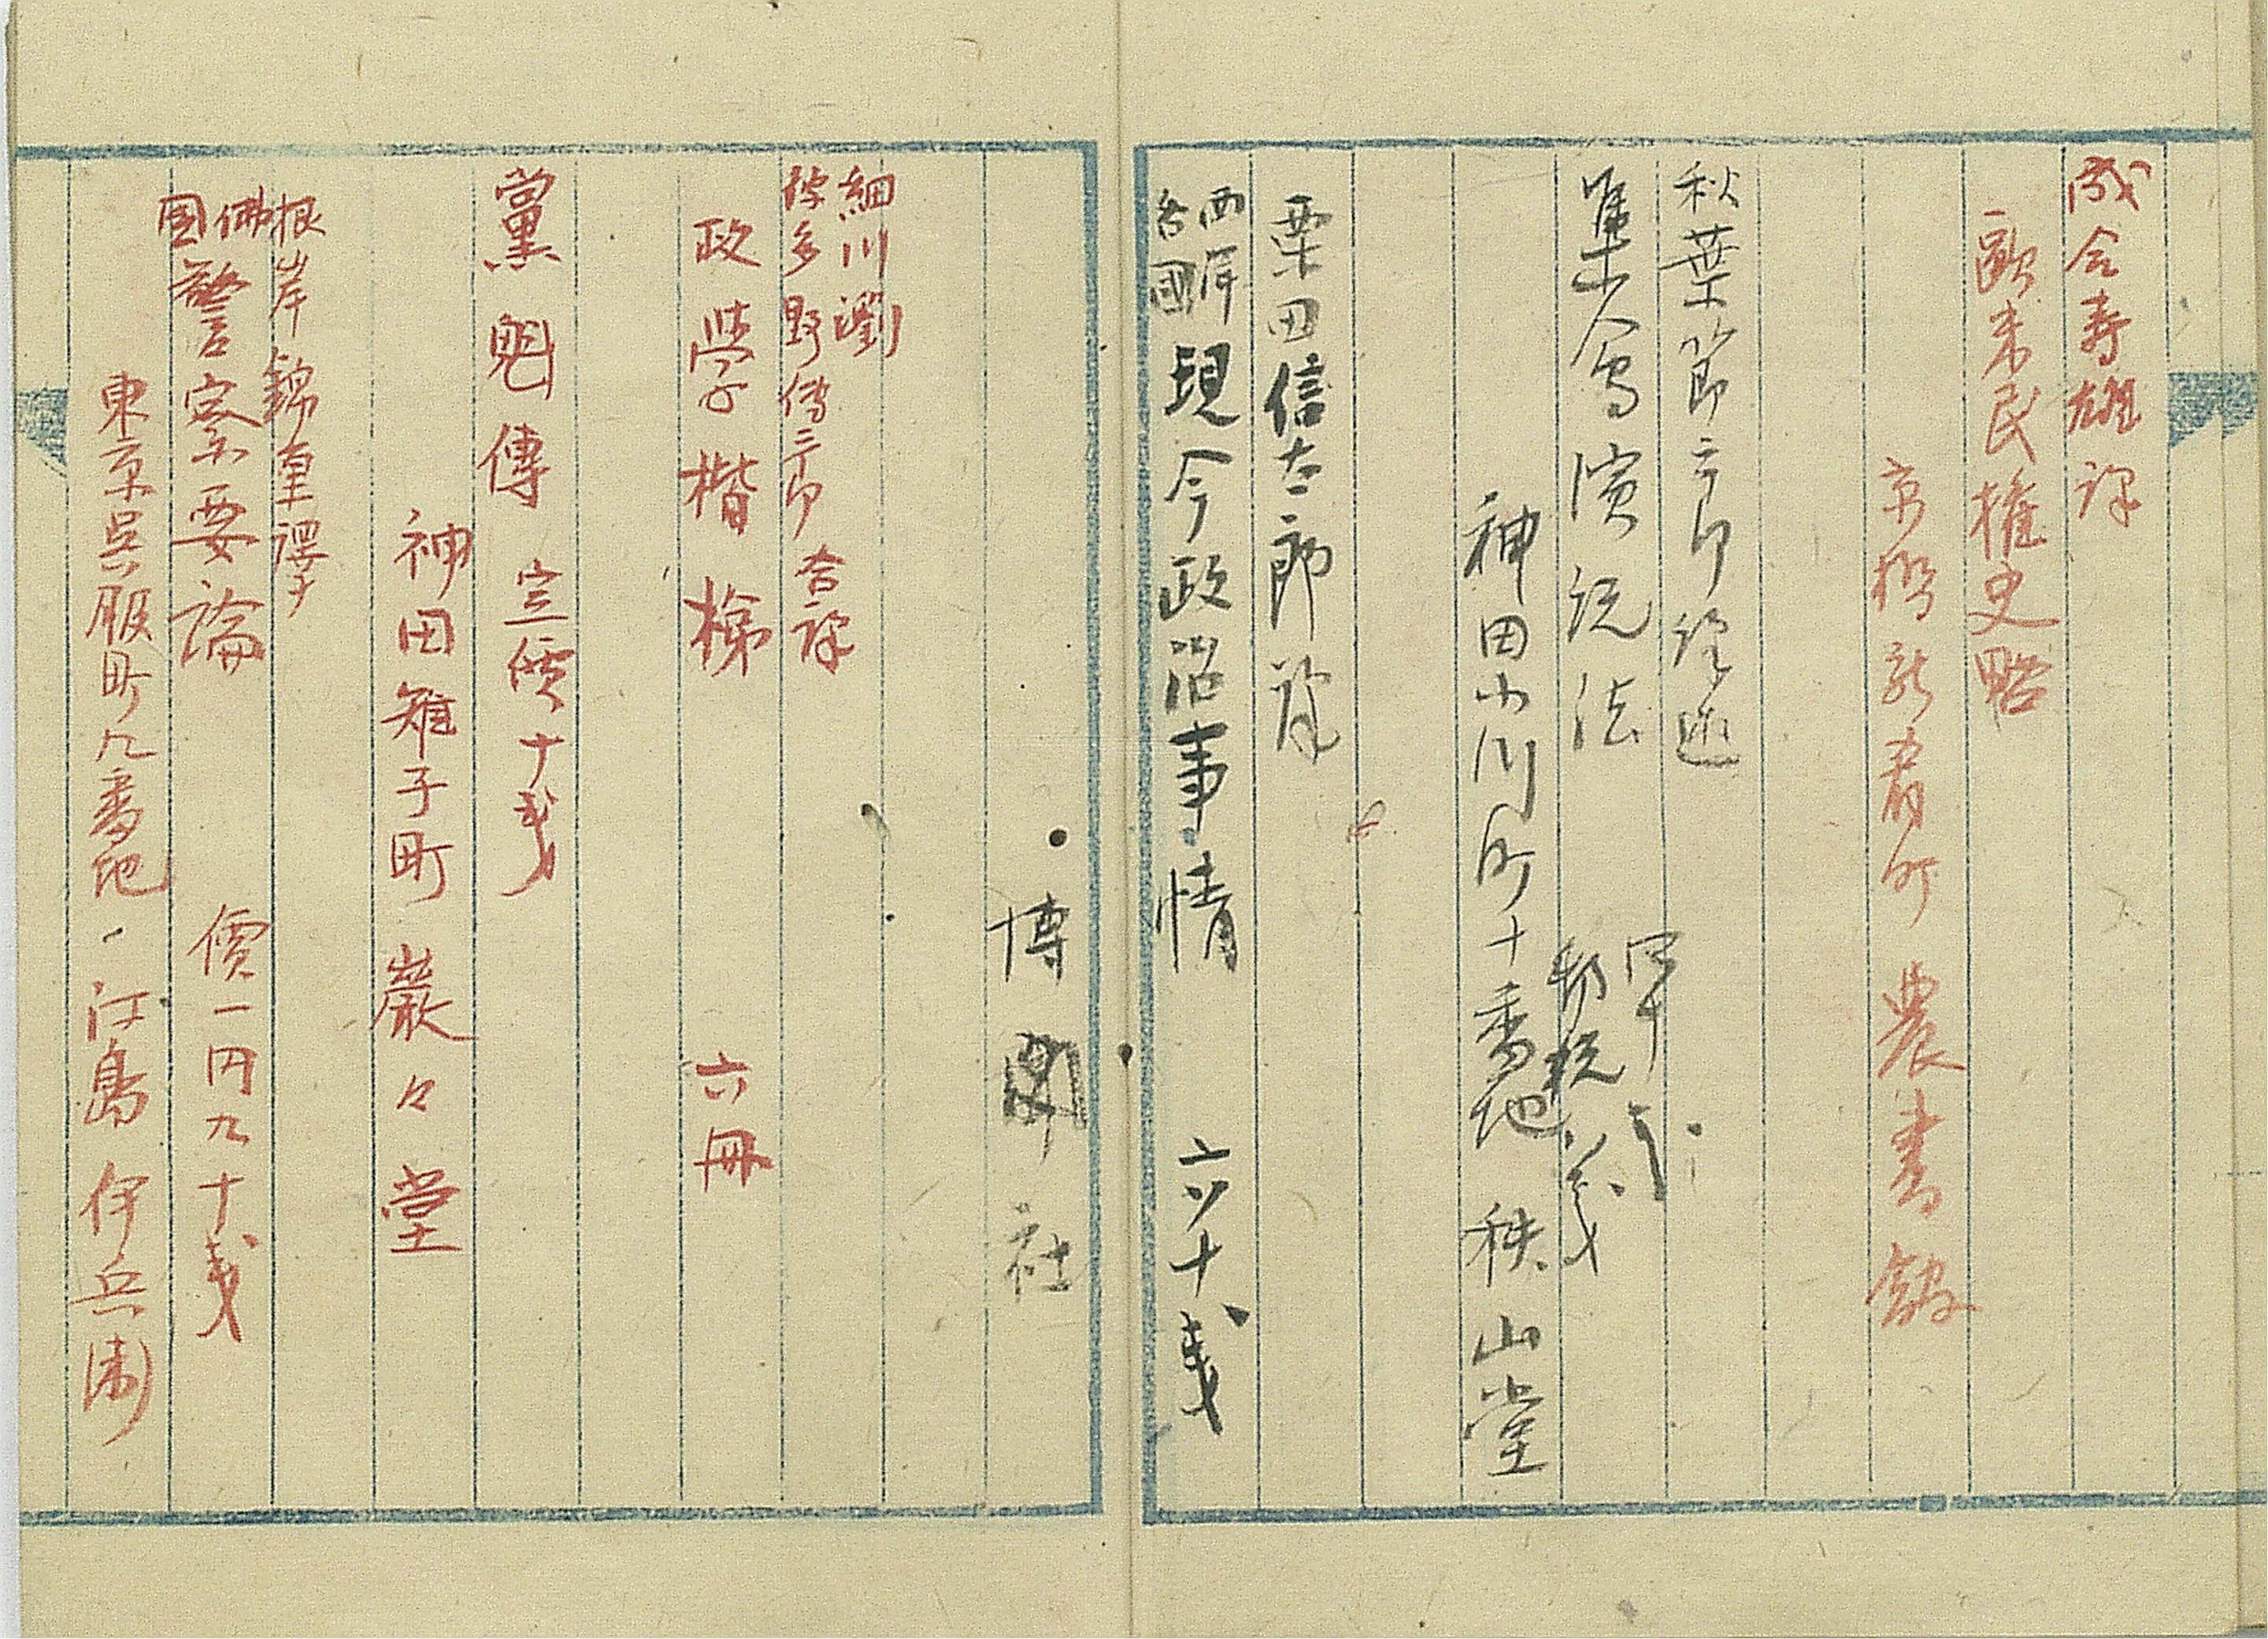 成合寿雄訳
欧米民権史略
京橋新肴町 農書舘
秋葉節三郎纂述
集会演説法
定價十五
郵税 銭
神田小川町十番地 秩山堂
栗田信太郎訳
西洋各國 現今政治事情 六十銭
博聞社
細川瀏
博多野傳三郎 合訳
政学楷梯 六冊
黨魁傳 定價十銭
神田雉子町 巌々堂
根岸錦重譯
佛國 警察要論 價一円九十銭
東京呉服町九番地・江島伊兵衛